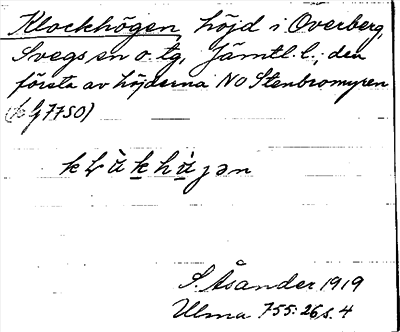 Klockhögen, höjd i Överberg,
Svegs sn o. tg, Jämtl. l.; den
första av höjderna NO Stenbromyren
(k G 7750)
S. Åsander 1919
Ulma 755:26 s. 4